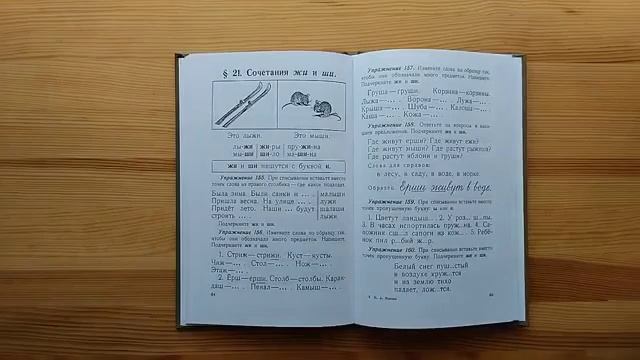 § 21. Сочетания жи и ши.
Это лыжи. Это мыши.
лы-жи жи-ры пру-жи-на
мы-ши ши-ло ма-ши-на
жи и ши пишутся с буквой и.
Упражнение 155. При списывании вставьте вместо
точек слова из правого столбика — где какое подходит.
Была зима. Были санки и ... . малыши
Пришла весна. На улице ... . лужи
Придёт лето. Наши ... будут шалаши
строить ... . лыжи
Подчеркните жи и ши.
Упражнение 156. Измените слова по образцу так,
чтобы они обозначали много предметов. Напишите.
Подчеркните жи и ши.
1. Стриж — стрижи. Куст — кусты.
Чиж — ... . Стол — ... . Нож — ... .
Этаж — ... .
2. Ёрш — ерши. Столб — столбы. Каран-
даш — ... . Пенал — ... . Камыш — ... .
64
Упражнение 157. Измените слова по образцу так,
чтобы они обозначали много предметов. Напишите.
Подчеркните жи и ши.
Груша — груши. Корзина — корзины.
Лыжа — ... . Ворона — ... . Лужа — ... .
Крыша — ... . Шуба — ... . Калоша — ... .
Каша — ... . Кожа — ... .
Упражнение 158. Ответьте на вопросы и напи-
шите предложения. Подчеркните жи и ши.
Где живут ерши? Где живут ежи?
Где живут мыши? Где растут рыжики?
Где растут яблони и груши?
Слова для справок:
в лесу, в саду, в воде, в норке.
Образец. Ерши живут в воде.
Упражнение 159. При списывании вставьте вместо
точек пропущенную букву: ы или и.
1. Цветут ландыш... . 2. У роз... ш...пы.
3. В часах испортилась пруж...на. 4. Са-
пожник сш...л сапоги из кож... . 5. Ребё-
нок пил р...бий ж...р.
Упражнение 160. При списывании вставьте вместо
точек пропущенную букву. Подчеркните жи и ши.
Белый снег пуш...стый
в воздухе круж...тся
и на землю тихо
падает, лож...тся.
65